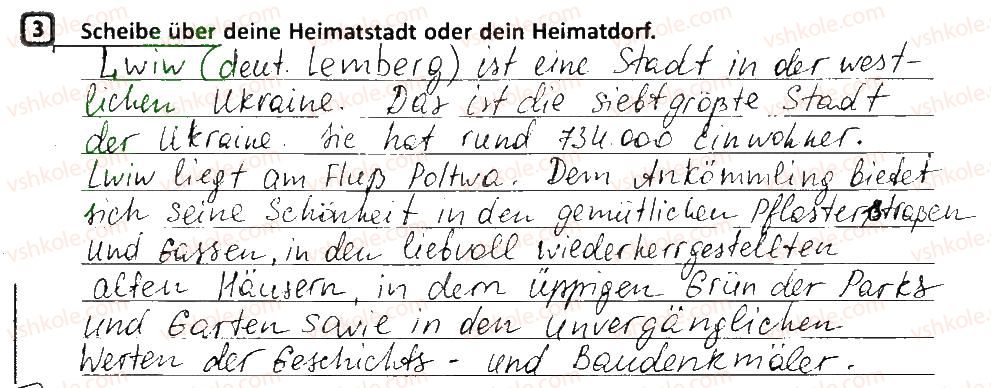 3 Scheibe über deine Heimatstadt oder dein Heimatdorf.
Lwiw (deut. Lemberg) ist eine Stadt in der west-
lichen Ukraine. Das ist die siebtgrößte Stadt
der Ukraine. Sie hat rund 734.000 Einwohner.
Lwiw liegt am Fluß Poltwa. Dem Ankömmling bietet
sich seine Schönheit in den gemütlichen Pflasterstraßen
und Gassen, in den liebvoll wiederherrgestellten
alten Häusern, in dem üppigen Grün der Parks
und Garten sowie in den unvergänglichen
Werten der Geschichts - und Baudenkmäler.